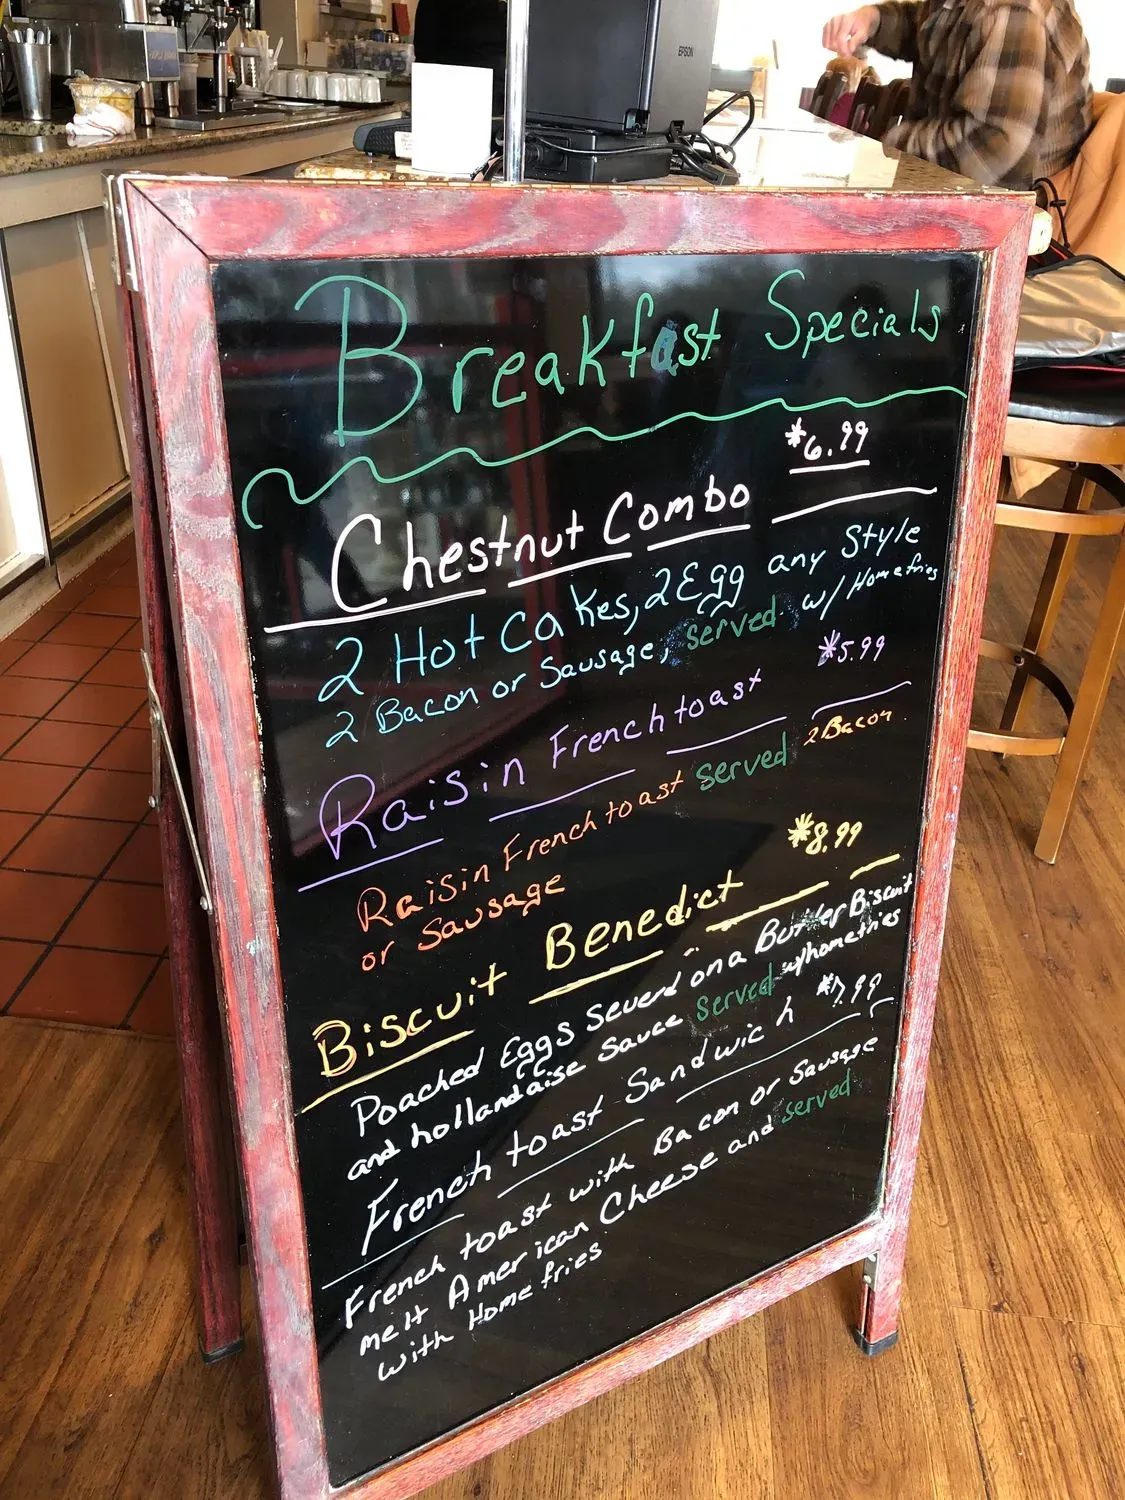 EPSON
Breakfast Specials
$6.99
Chestnut Combo
2 Hot Cakes, 2 Egg any Style
2 Bacon or Sausage, served w/ Homefries
$5.99
Raisin French toast
Raisin French toast served 2 Bacon
or Sausage
$8.99
Biscuit Benedict
Poached Eggs Severd on a Butter Biscuit
and hollandaise Sauce served w/homefries
French toast Sandwich $7.99
French toast with Bacon or Sausage
melt American Cheese and served
with Home fries